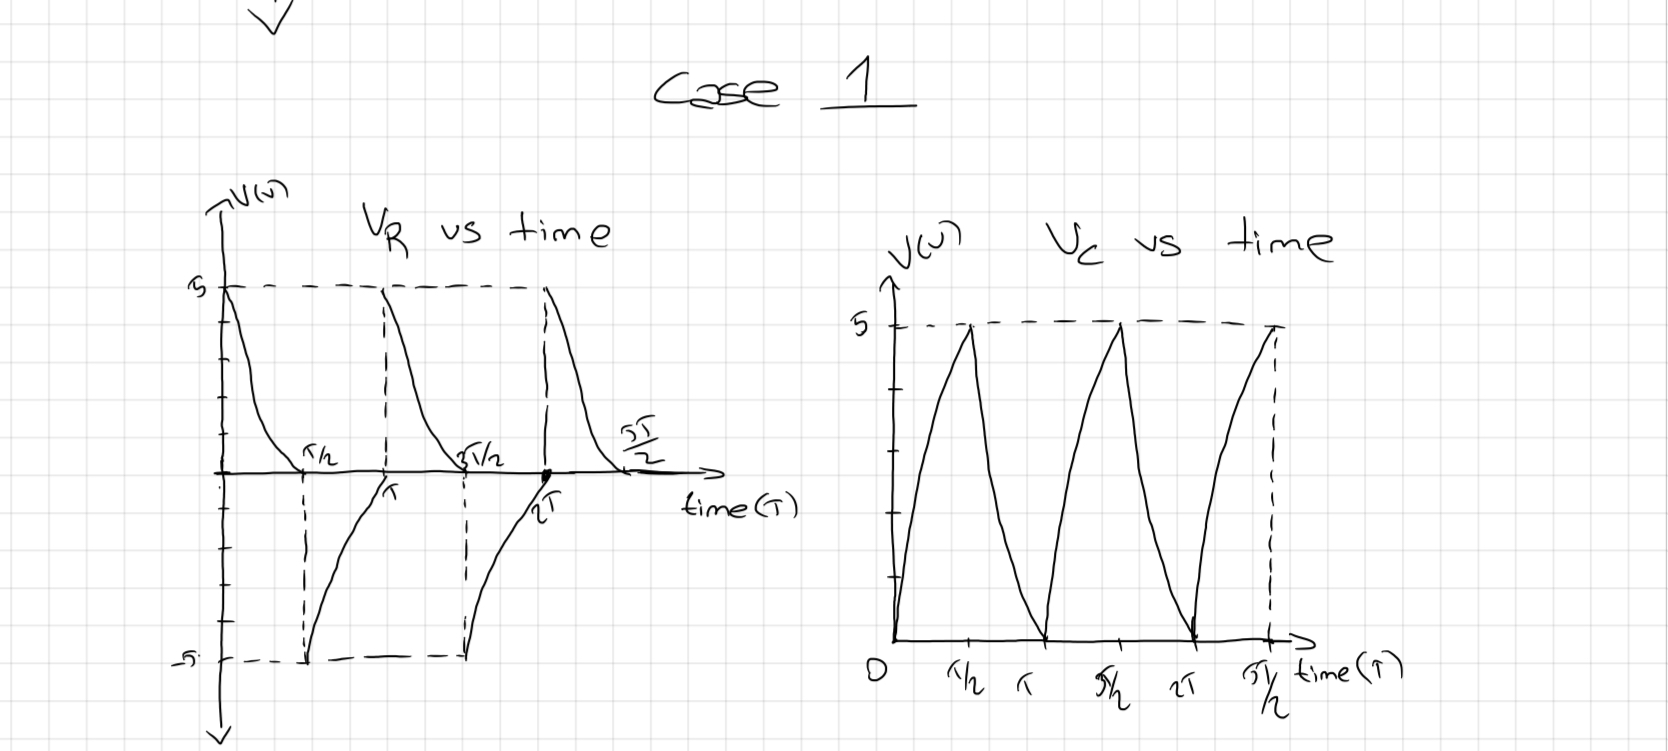 Case 1
V(v)
V_R vs time
5
T/2
3T/2
5T/2
T
2T
time(T)
-5
V(v)
V_C vs time
5
0 T/2 T 2T 5T/2 time(T)